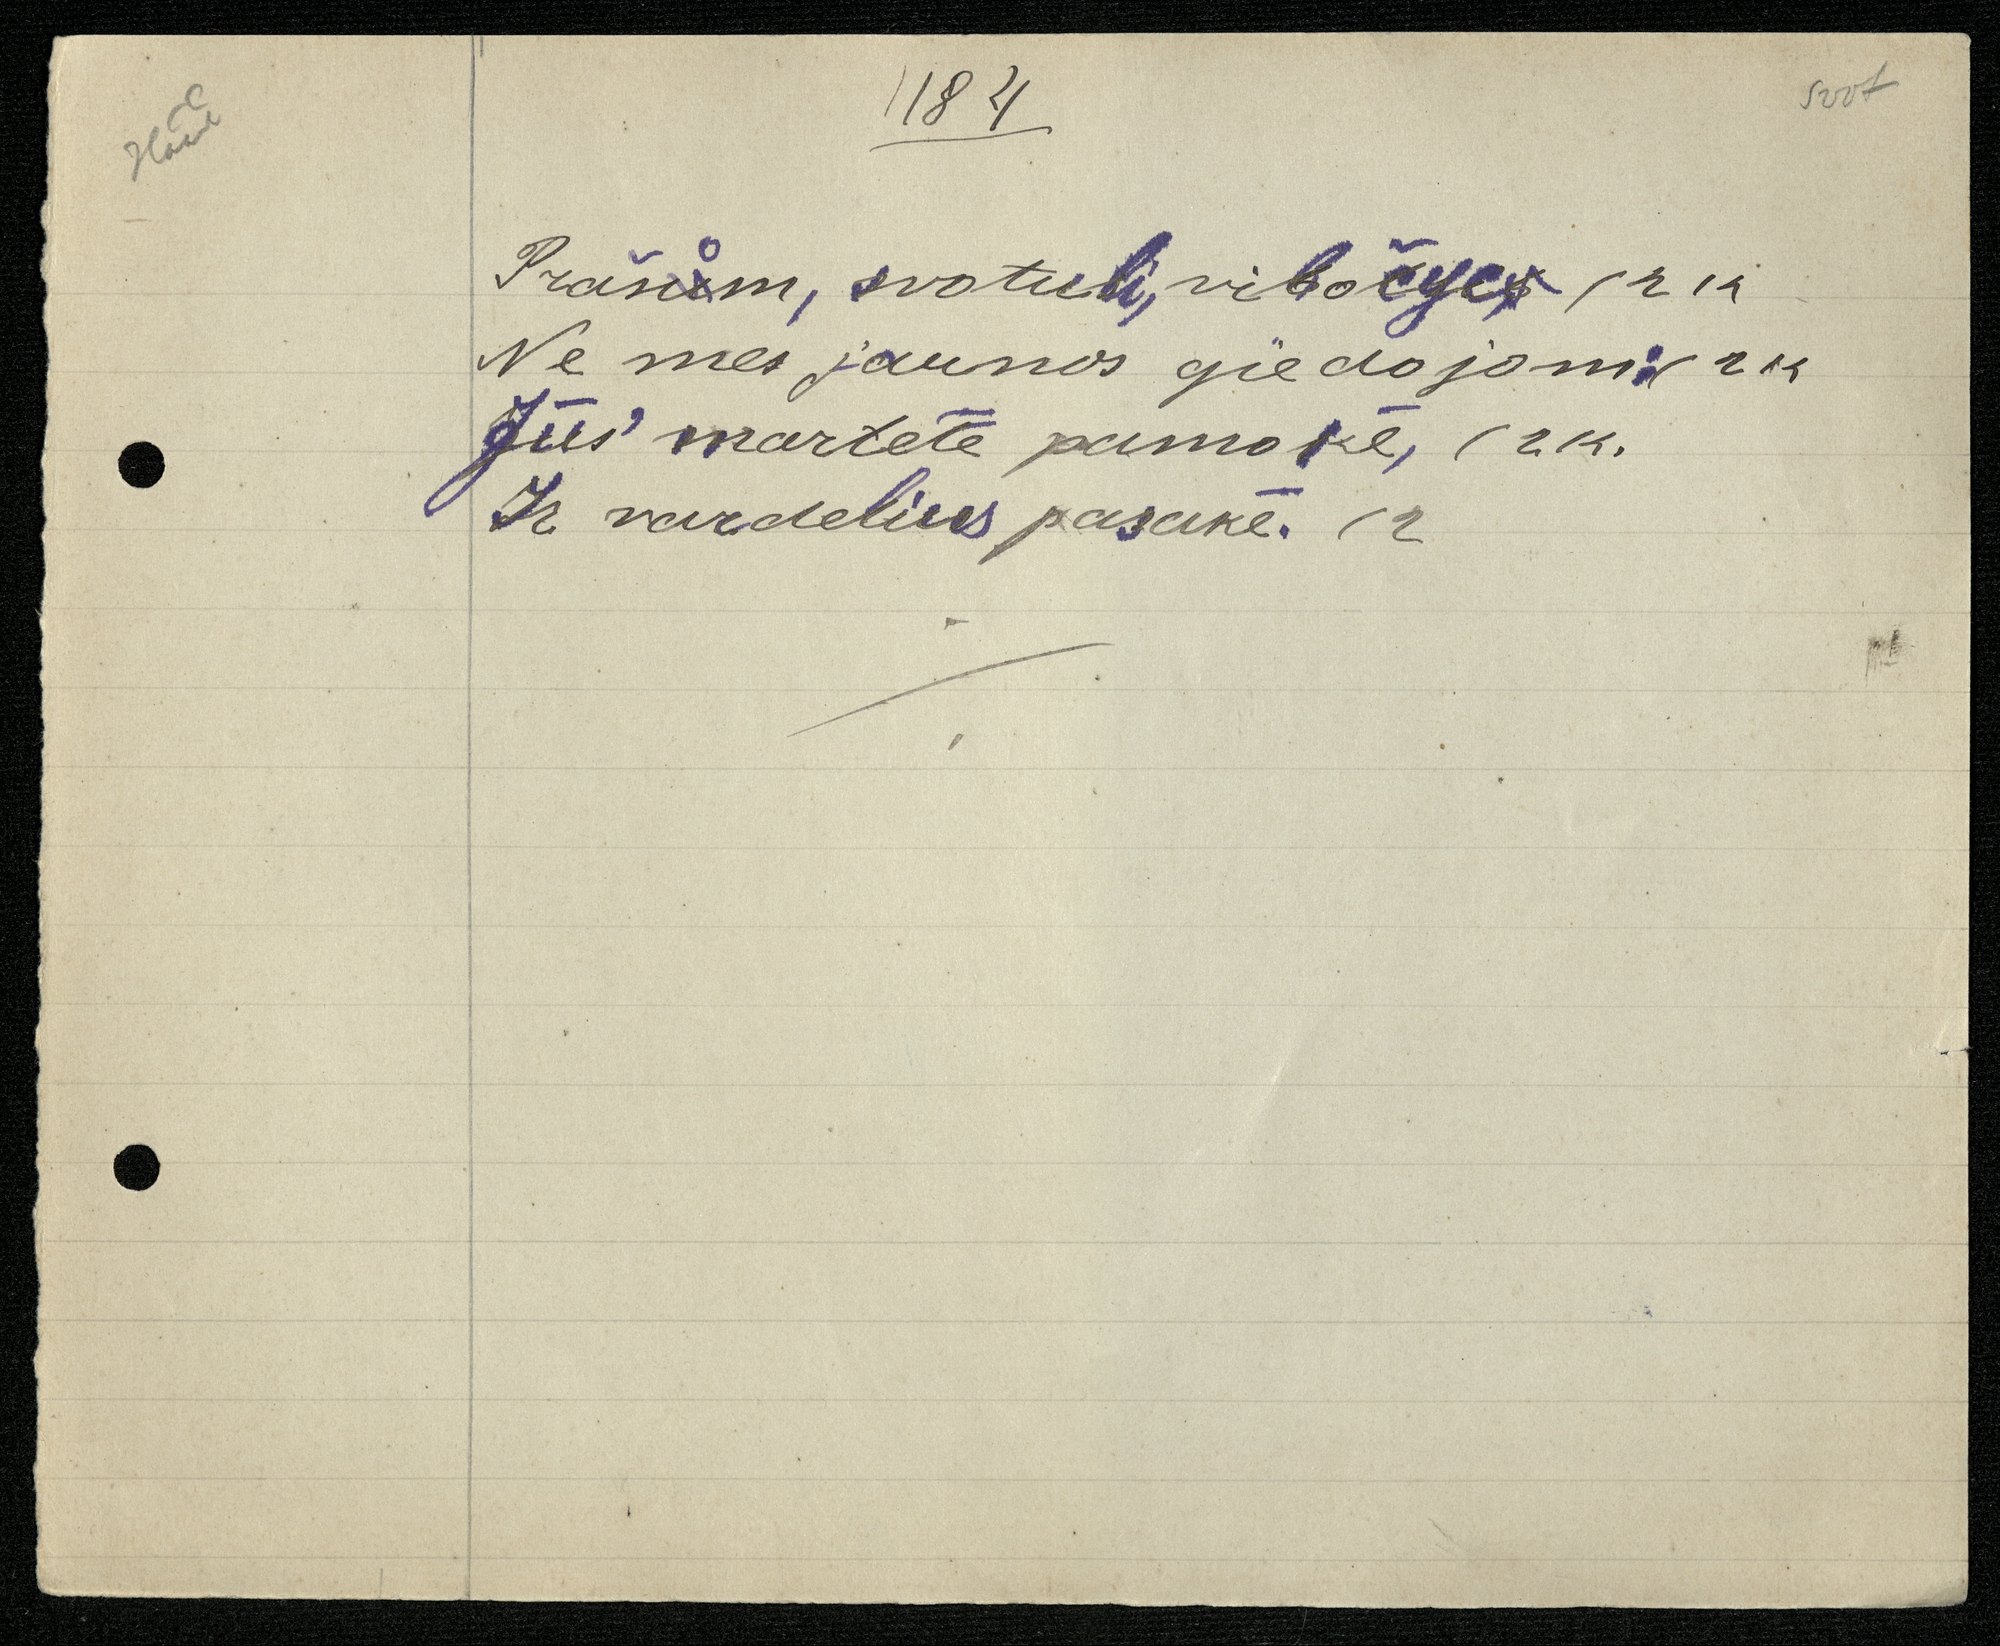 184
svot
Prašům, svotuli, vibočyc, (2 k
Ne mes jaunos giedojom: (2 k
Jūs' martetē pamokē, (2 k.
Ir vardelius pasakē. (2